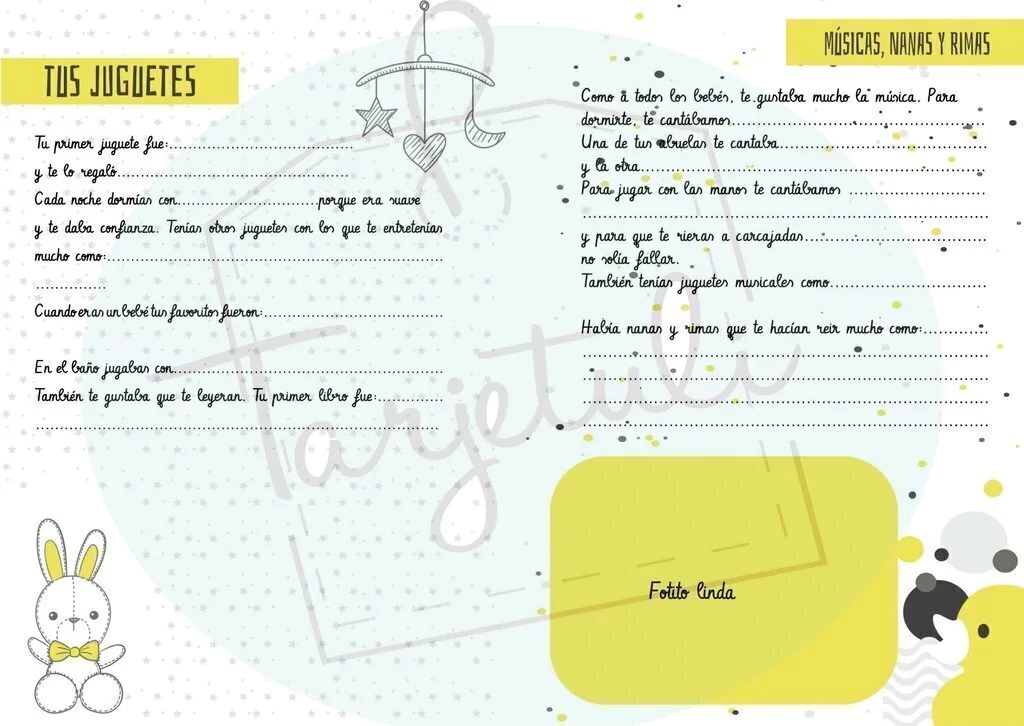 TUS JUGUETES
Tu primer juguete fue:..........................................
y te lo regaló.....................................................
Cada noche dormías con................................porque era suave
y te daba confianza. Tenías otros juguetes con los que te entretenías
mucho como:.............................................................................
................
Cuando eras un bebé tus favoritos fueron:.........................................
En el baño jugabas con..............................................................
También te gustaba que te leyeran. Tu primer libro fue:...............
............................................................................................
MÚSICAS, NANAS Y RIMAS
Como a todos los bebés, te gustaba mucho la música. Para
dormirte, te cantábamos..........................................................
Una de tus abuelas te cantaba................................................
y la otra................................................................................
Para jugar con las manos te cantábamos ................................
.............................................................................................
y para que te rieras a carcajadas..........................................
no solía fallar.
También tenías juguetes musicales como....................................
Había nanas y rimas que te hacían reir mucho como:...............
.............................................................................................
.............................................................................................
.............................................................................................
.............................................................................................
Fotito linda
Tarjetuli